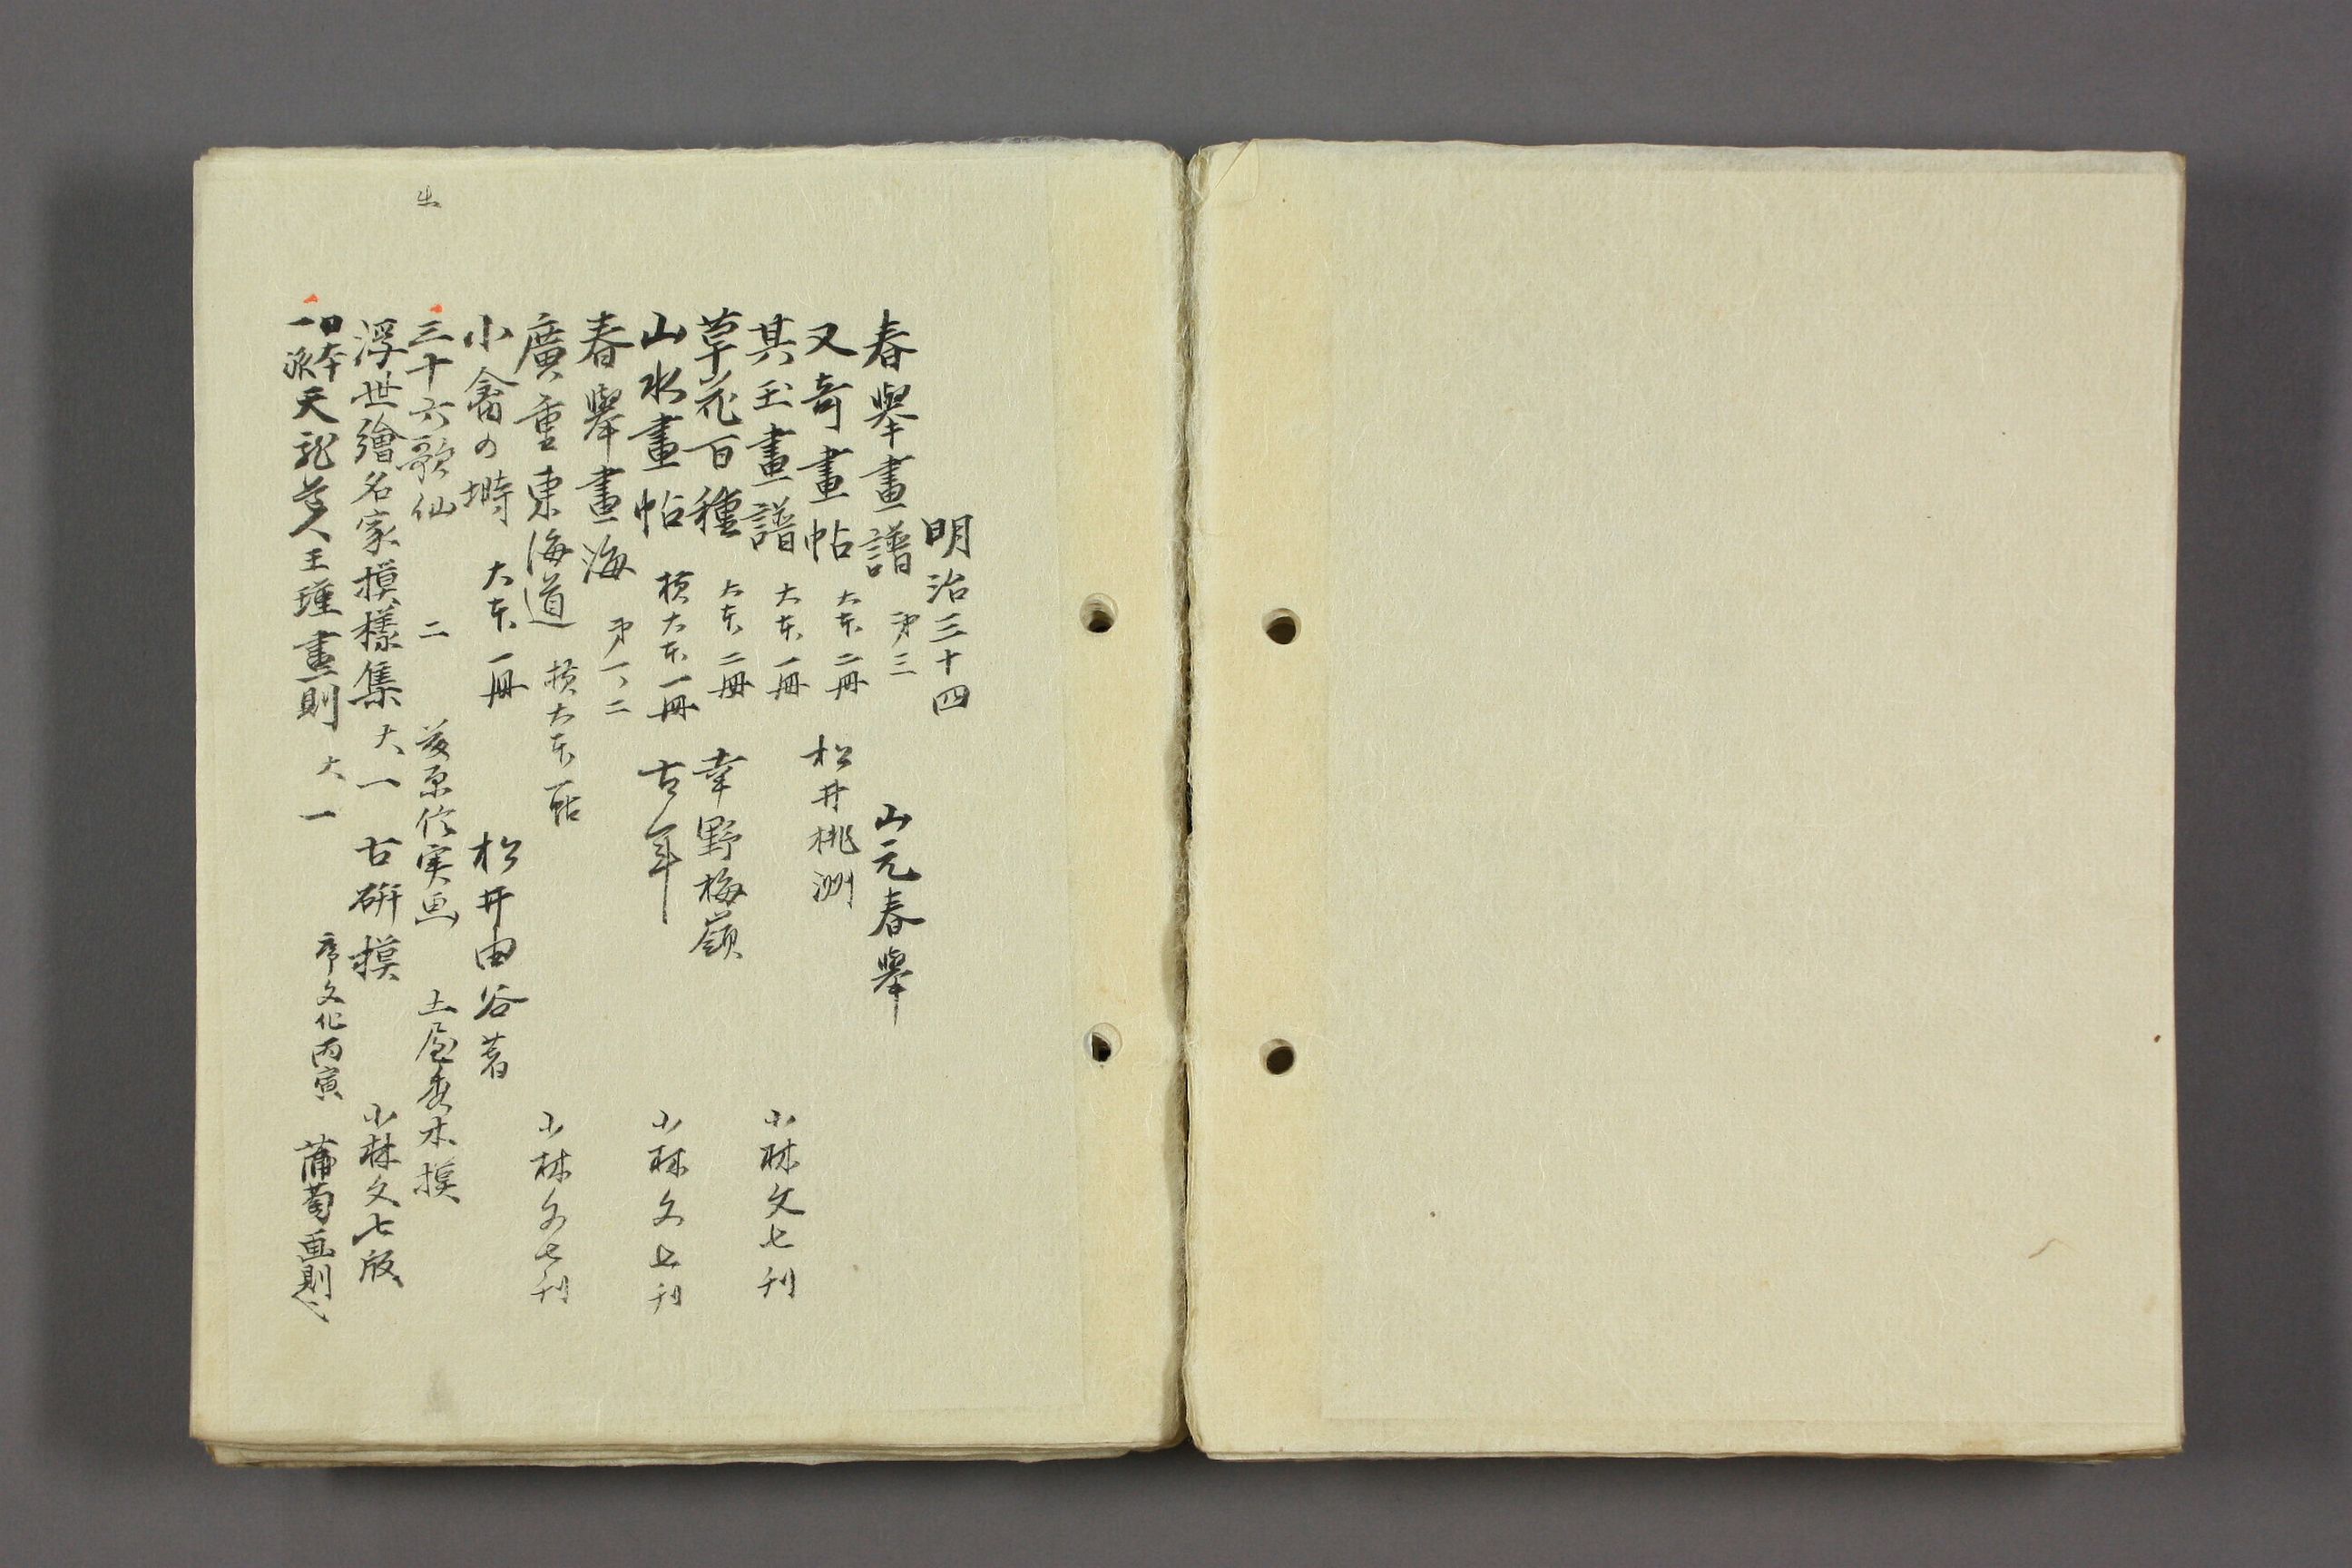 明治三十四
春擧畫譜 第三 山元春擧
又奇畫帖 大本 二冊 松井桃洲
其玉畫譜 大本 一冊 小林文七刊
草花百種 大本 二冊 幸野梅嶺
山水畫帖 横大本一冊 古年 小林文七刊
春擧畫海 第一、二
廣重東海道 横大本一帖 小林文七刊
小禽の塒 大本一冊 松井由谷著
出 三十六歌仙 二 藤原信実画 土屋秀禾模
浮世繪名家模樣集 大一 古硏摸 小林文七版
日本一派 天龍道人王瑾畫則 大一 序文化丙寅 蒲萄画則